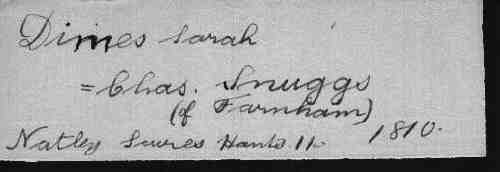 Dimes Sarah
= Chas. Snuggs
(of Farnham)
Natley Scures Hants. 11. 1810.